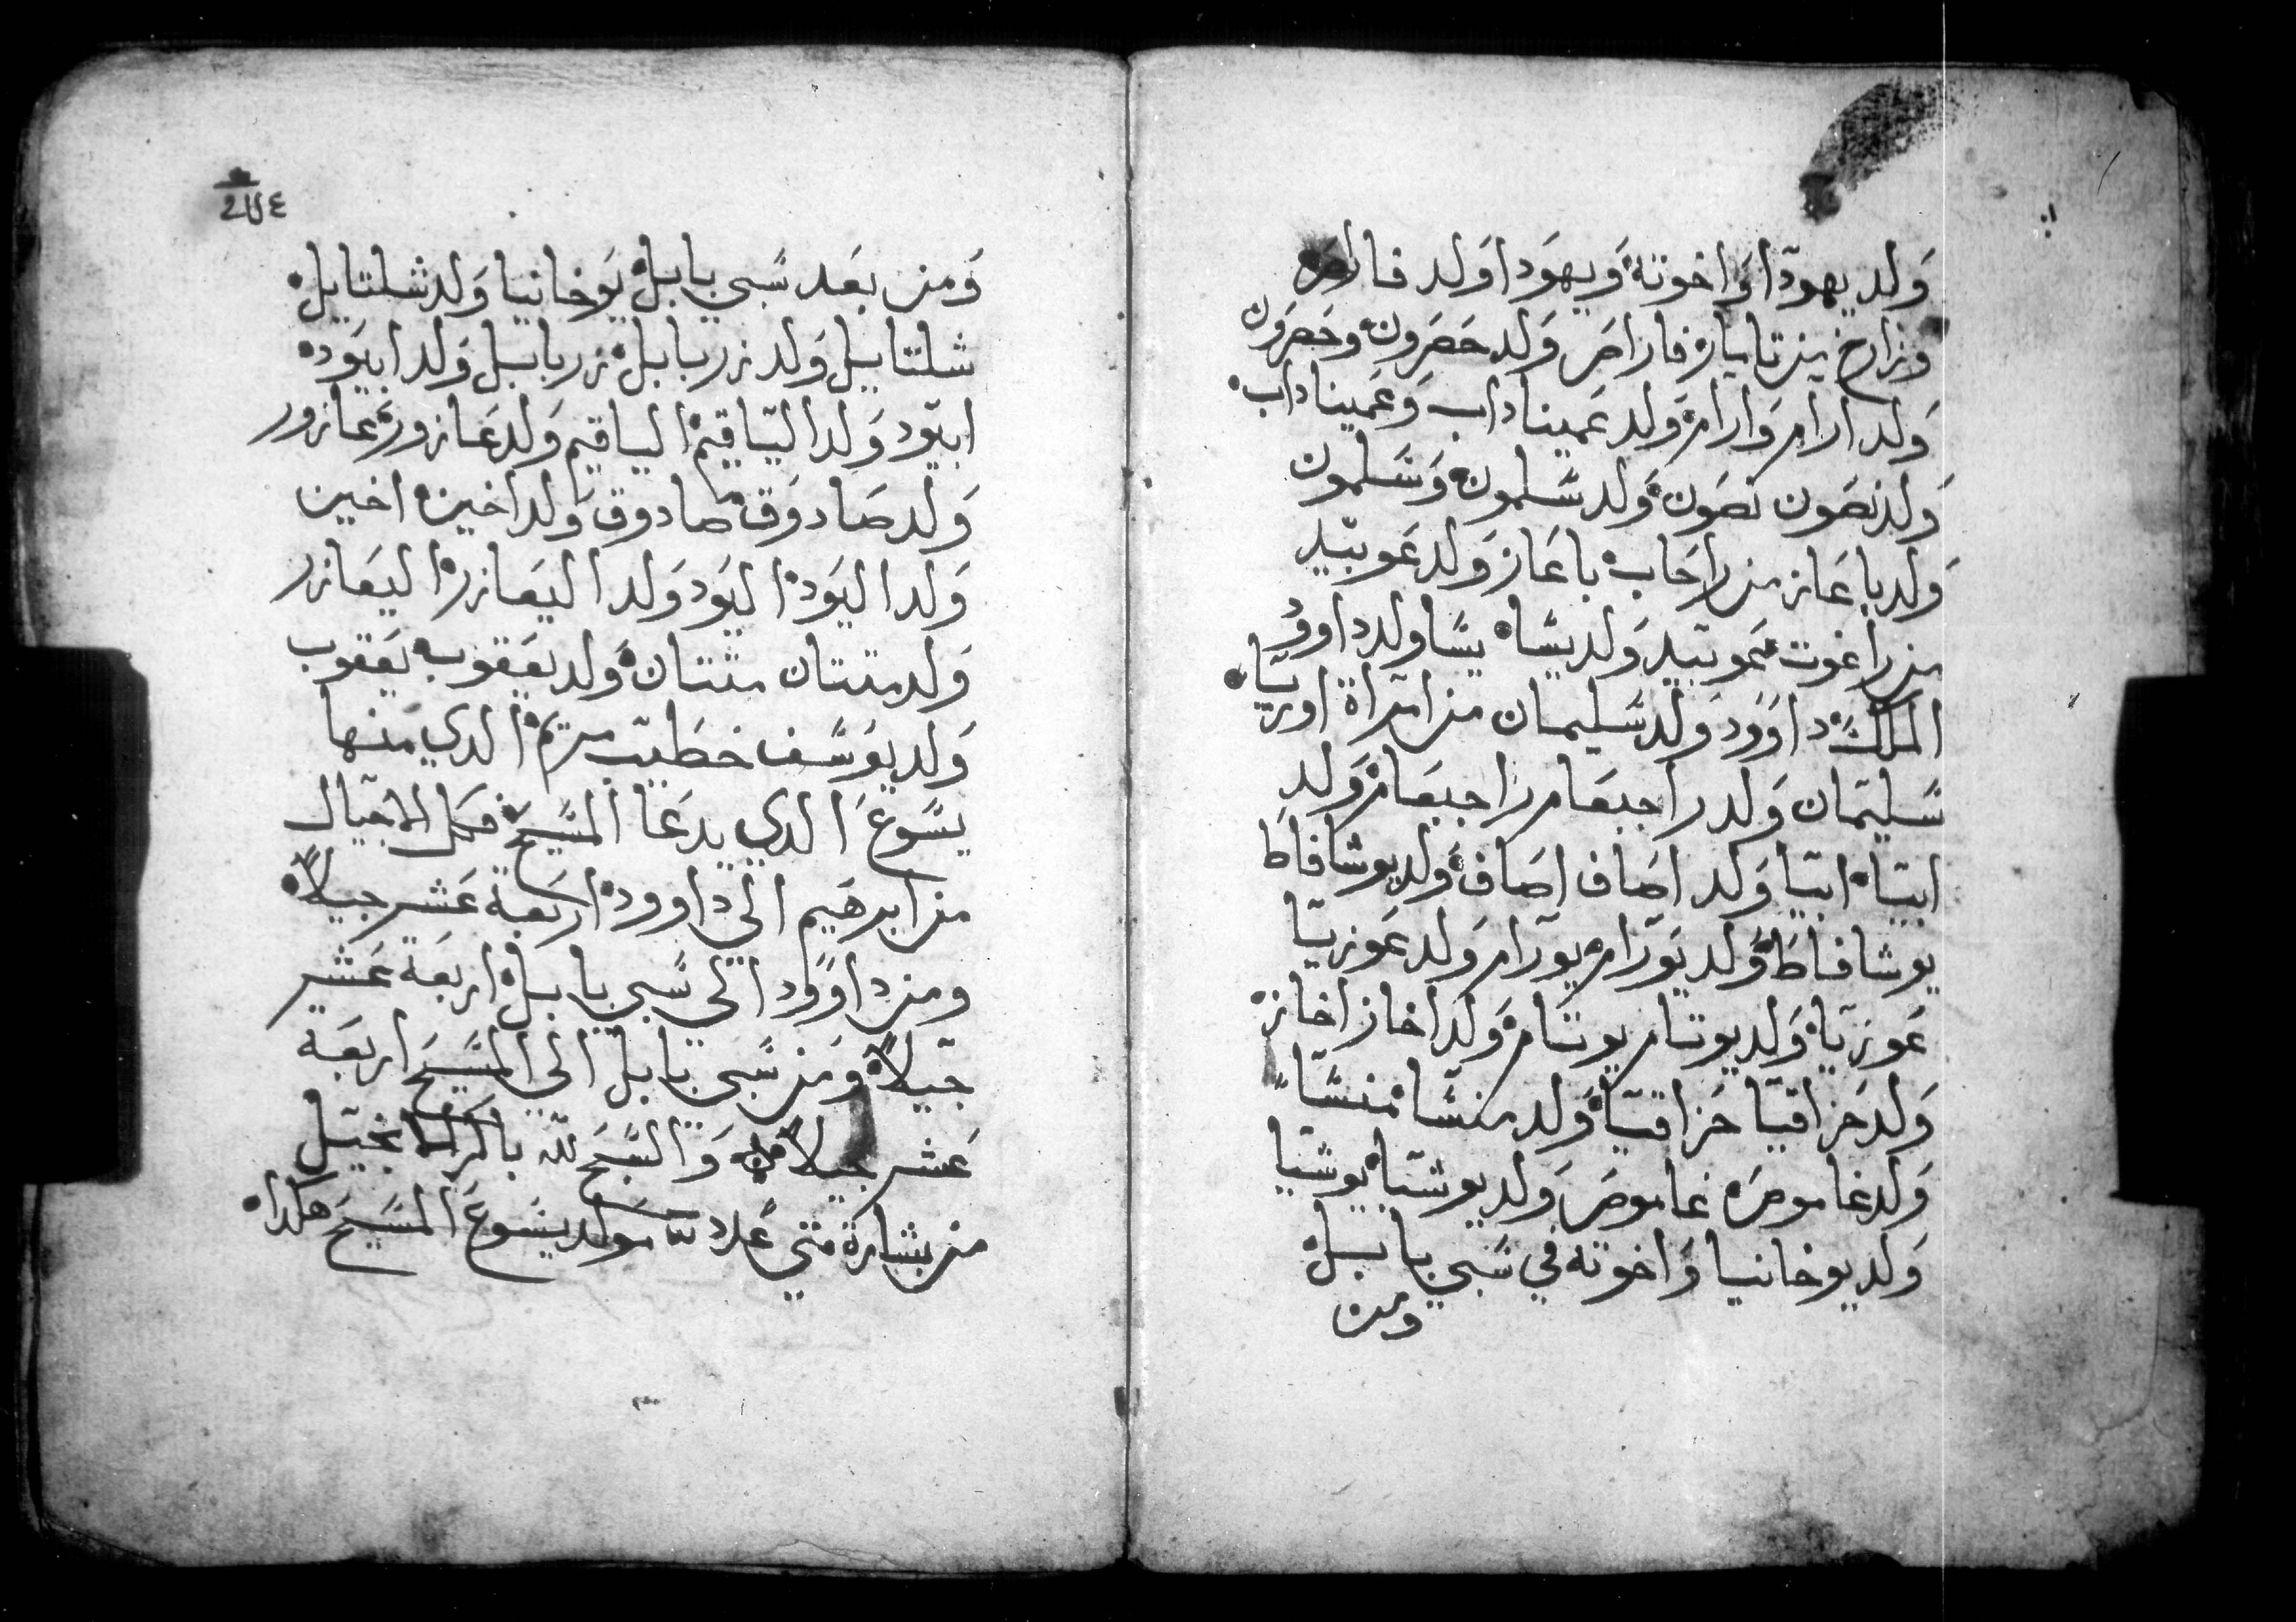 وَلد يهودا وَاخوتهْ وَيهوَدا وَلد فاراصَ
وَزارخ من تاماره فاراصَ وَلد حَصَرون وحَصَرَون
وَلد ارام وَارامْ وَلد عَميناداب وَعَميناداب
وَلد نصَون نصَون وَلد سَلمون وَسَلمون
وَلد باعَاز من راحَاب باعَاز وَلد عَوبيد
من راغوت عَوبيد وَلد يسَّا يسَّا ولد داوود
الملكْ داوَود وَلد سَليمان من امراة اوريَّا
سَليمان وَلد راجبعَام راجبعَام وَلد
ابيَّا ابيَّا وَلد اصَاف اصَاف وَلد يوشافاط
يوشافاطَ وَلد يوَرام يورام وَلد عَوزيَّا
عَوزيَّا وَلد يوتام يوتام وَلد اخاز اخاز
وَلد حَزاقيا حَزاقيَّا وَلد منسَّا منسَّا
وَلد غاموصَ غاموصَ وَلد يوشيَّا يوشيا
وَلد يوخانيا وَاخوته في سَبي بابل
ومن
وَمن بعَد سَبي بابل يوَخانيا وَلد شلتاييل
شلتاييل وَلد زربابل زربابل وَلد ابيَود
ابيَود وَلد الياقيم الياقيم وَلد عَازور عَازور
وَلد صَادوَق صادوق وَلد اخين اخين
وَلد اليَود اليَود وَلد اليعَازر اليعَازر
وَلد متتان متتان وَلد يعَقوب يعَقوب
وَلد يوَسَف خطَيب مريَم الدي منها
يسَّوعَ الدي يدعَا المسَّيح فكل الاجيال
من ابرهَيم الي داوود اربَعَة عَشر جيلاً
ومن داوَود الي سَبي بابل اربعَة عَشر
جيلاً وَمن سَبي بابل الي المسَّيحَ اربعَة
عَشر جيلاً وَالسَّبحَ لله باكر الانجيَل
من بشارة متي مَولد يسَوعَ المسَّيحَ هَكدا